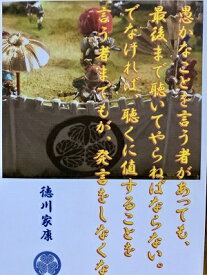 愚かなことを言う者があっても、
最後まで聴いてやらねばならない。
でなければ、聴くに値することを
言う者までもが、発言をしなくな
徳川家康